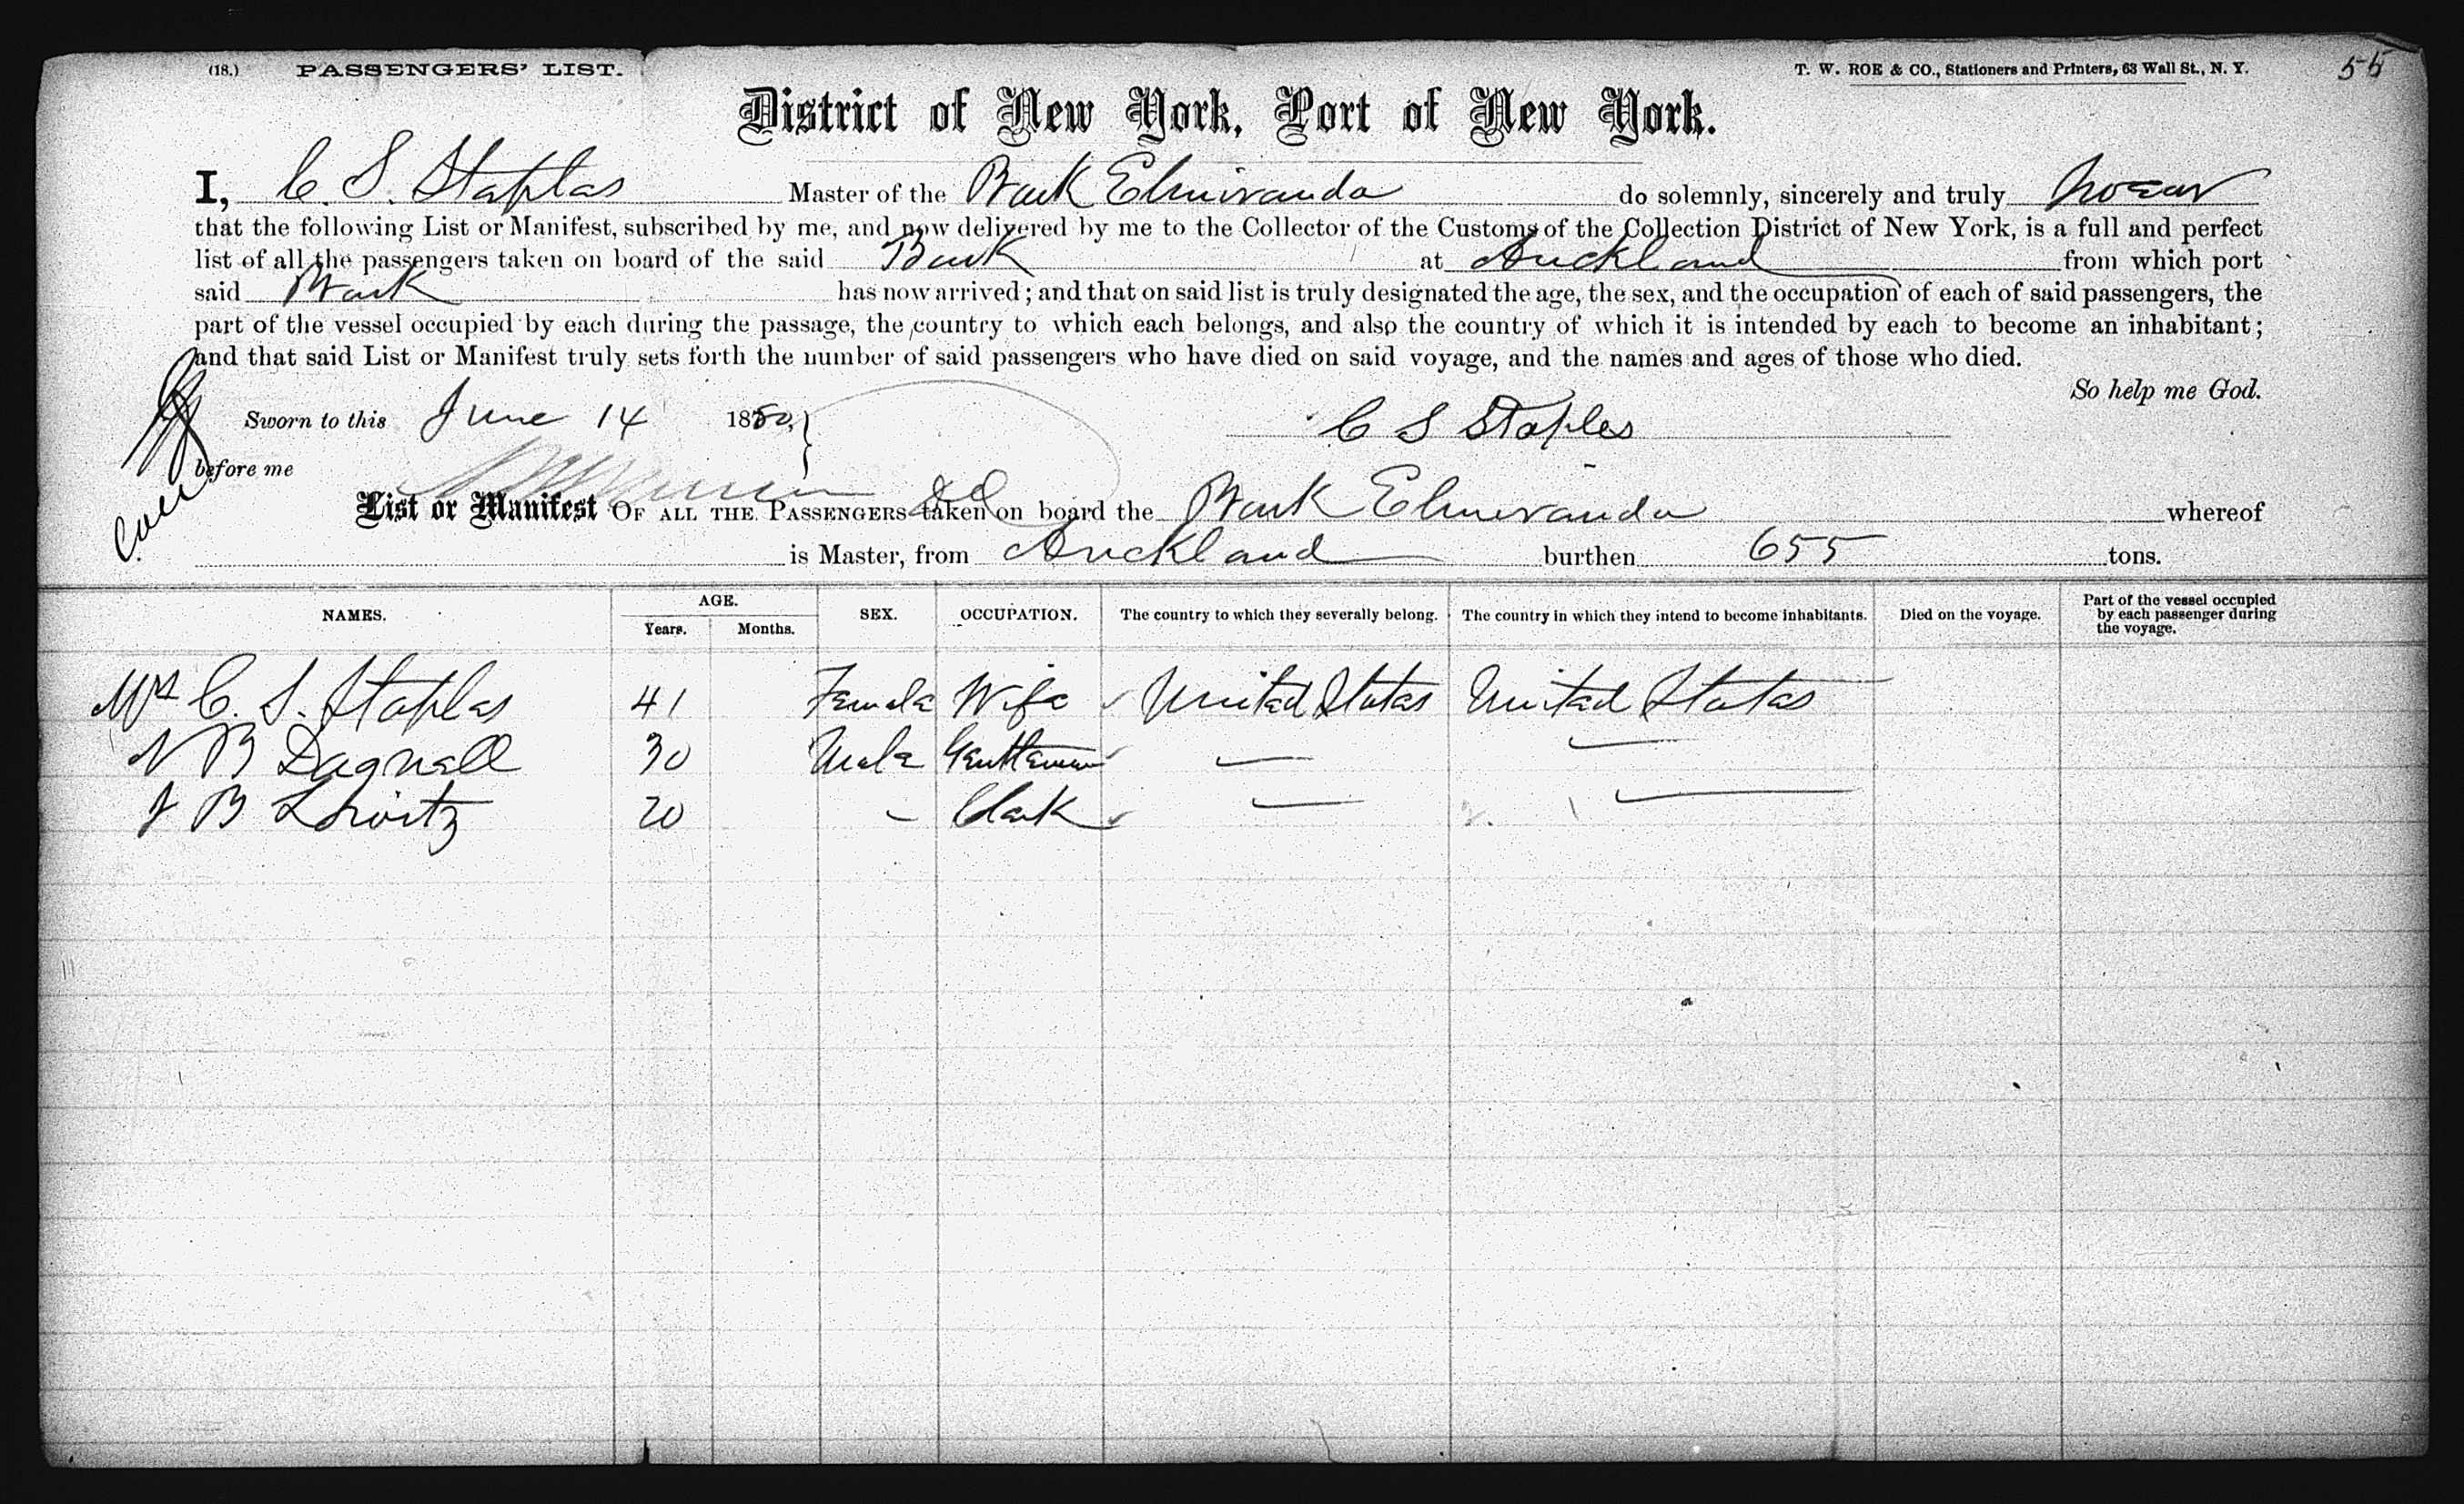 (18.) PASSENGERS' LIST. T. W. ROE & CO., Stationers and Printers, 63 Wall St., N. Y. 55
District of New York, Port of New York.
I, C. S. Staples Master of the Bark Elmiranda do solemnly, sincerely and truly swear
that the following List or Manifest, subscribed by me, and now delivered by me to the Collector of the Customs of the Collection District of New York, is a full and perfect
list of all the passengers taken on board of the said Bark at Auckland from which port
said Bark has now arrived; and that on said list is truly designated the age, the sex, and the occupation of each of said passengers, the
part of the vessel occupied by each during the passage, the country to which each belongs, and also the country of which it is intended by each to become an inhabitant;
and that said List or Manifest truly sets forth the number of said passengers who have died on said voyage, and the names and ages of those who died.
So help me God.
Sworn to this June 14 1880, C S Staples
before me
List or Manifest OF ALL THE PASSENGERS taken on board the Bark Elmiranda whereof
is Master, from Auckland burthen 655 tons.
NAMES. AGE. Years. Months. SEX. OCCUPATION. The country to which they severally belong. The country in which they intend to become inhabitants. Died on the voyage. Part of the vessel occupied by each passenger during the voyage.
Mrs C. S. Staples 41 Female Wife United States United States
N B Dagnall 30 Male Gentleman — —
J B 20 - Clerk — —